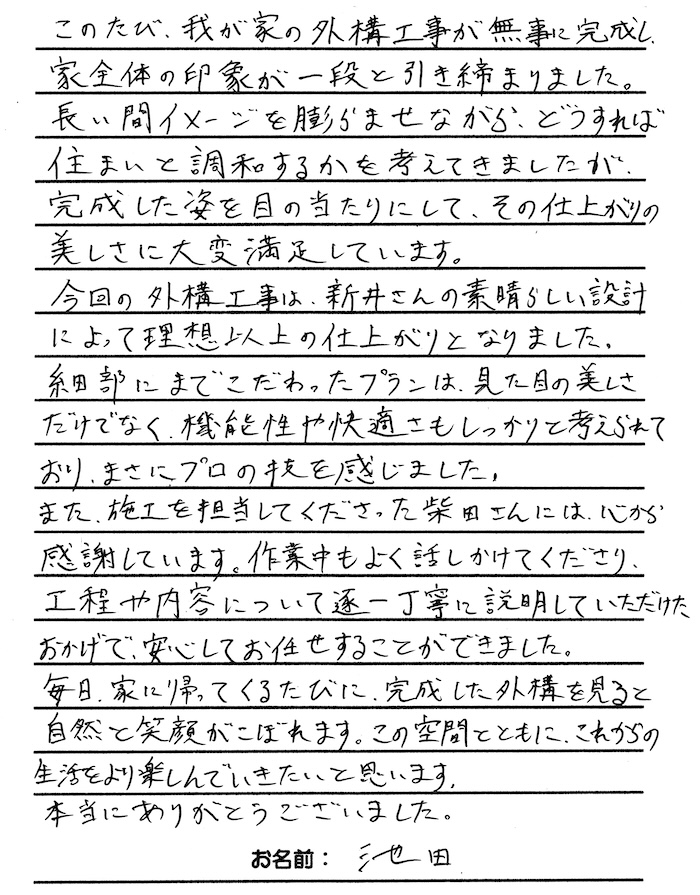 このたび、我が家の外構工事が無事に完成し、
家全体の印象が一段と引き締まりました。
長い間イメージを膨らませながら、どうすれば
住まいと調和するかを考えてきましたが、
完成した姿を目の当たりにして、その仕上がりの
美しさに大変満足しています。
今回の外構工事は、新井さんの素晴らしい設計
によって理想以上の仕上がりとなりました。
細部にまでこだわったプランは、見た目の美しさ
だけでなく、機能性や快適さもしっかりと考えられて
おり、まさに、プロの技を感じました。
また、施工を担当してくださった柴田さんには、心から
感謝しています。作業中もよく話しかけてくださり、
工程や内容について逐一丁寧に説明していただけた
おかげで、安心してお任せすることができました。
毎日、家に帰ってくるたびに、完成した外構を見ると
自然と笑顔がこぼれます。この空間とともに、これからの
生活をより楽しんでいきたいと思います。
本当にありがとうございました。
お名前： 池田